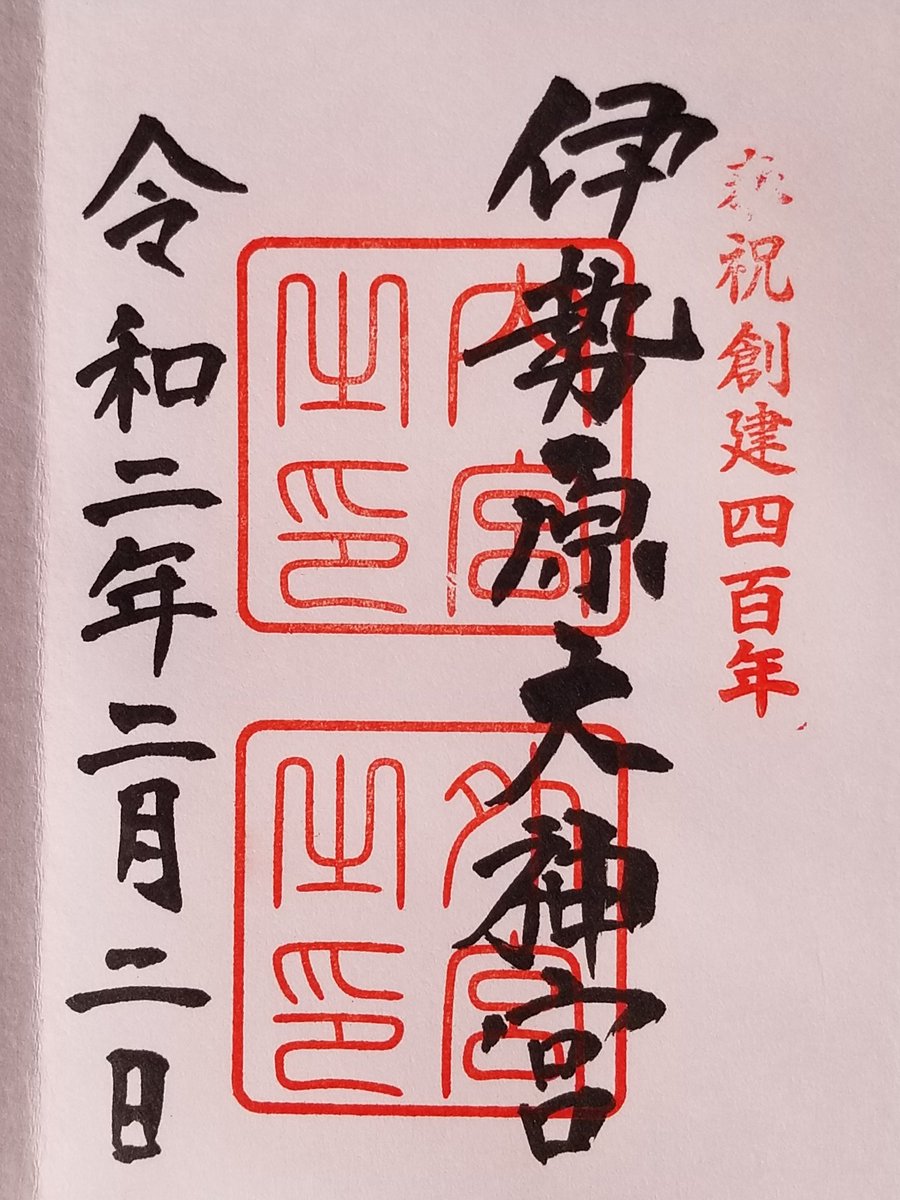 奉祝創建四百年
伊勢原大神宮
内宮
之印
外宮
之印
令和二年二月二日